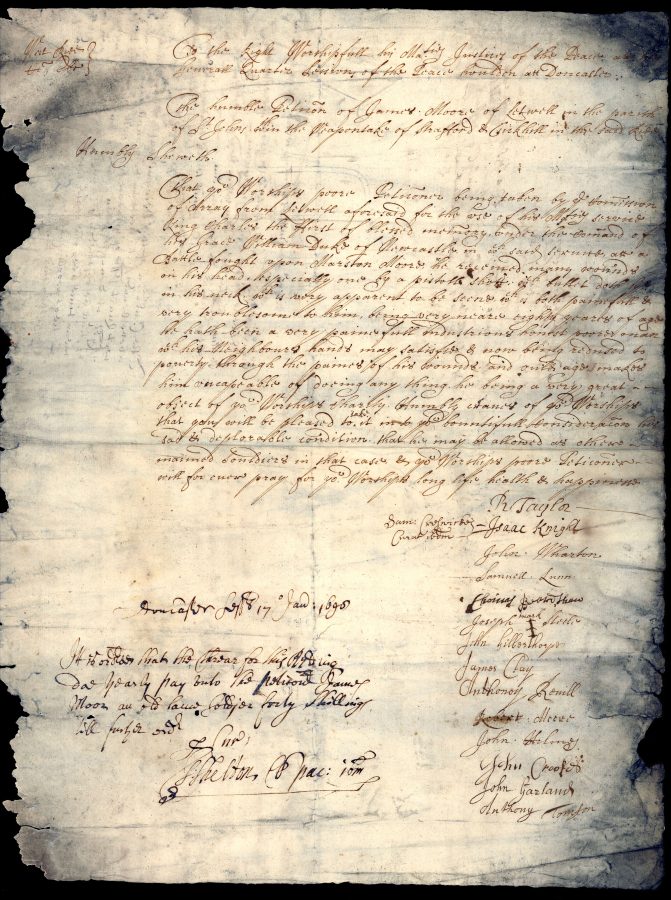 West Rideing
To the Right Worshipfull his Maties Justices of the Peace att the
Generall Quarter Sessions of the Peace houlden att Doncaster
The humble Peticon of James Moore of Letwell in the parish
of St Johns in the Weapontake of Strafford & Tickhill in the said Rideing
Humbly Sheweth
That yor Worships poore Peticoner being taken by ye Comission
of Array from Letwell aforesaid for the use of his Maties service
King Charles the ffirst of blessed memory under the Comand of
his Grace William Duke of Newcastle in ye said service att a
Battle fought upon Marston Moore he received many wounds
on his head especially one by a pistoll shott ye bullet
in his neck wch is very apparent to be seene wch is both painfull &
very troublesom to him, being very neare eighty yeares of age
he hath been a very painefull Industrious
wch his Neighbours hands may satisfie & now being reduced to
poverty through the paines of his wounds and ould age makes
him uncapeable of doeing any thing he being a very great
object of yor Worships charity Humbly craves of yor Worships
that you will be pleased to take it into yor bountifull Consideracon his
sad & deplorable condition that he may be allowed as others
maimed Souldiers in that case & yor Worships poore Peticoner
will for ever pray for yor Worships long life health & happiness
R Taylor
Isaac Knight
John Wharton
Samuell Lunn
Thomas
Joseph mark Steele
John Gilberthorpe
James Clay
Anthoney Revill
Robert Moore
John Holmes
John Crookes
John Garland
Anthony Tomson
Doncaster Sesss 17o Janu: 1698
It is ordered that the Threasr for this Rideing
doe yearly pay unto the peticoner James
Moor an old lame Soldjer forty shillings
till further order
P Cur
Shelton Cl pac: ibm